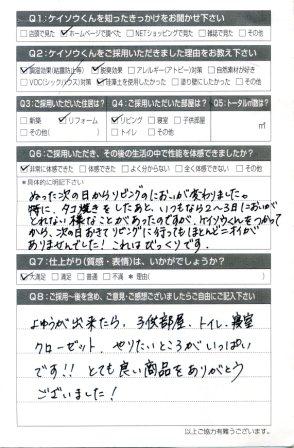 Q1：ケイソウくんを知ったきっかけをお聞かせ下さい
□店頭で見た ☑ホームページで調べた □NETショッピングで見た □雑誌で見た □その他
Q2：ケイソウくんをご採用いただきました理由をお教え下さい
☑調湿効果(結露防止等) ☑脱臭効果 □アレルギー(アトピー)対策 □自然素材が好き
□VOC(シックハウス)対策 ☑珪藻土を使用したかった □塗り壁にしたかった □その他
Q3：ご採用いただいた住居は？ Q4：ご採用いただいた部屋は？ Q5：トータル㎡数は？
□新築 ☑リフォーム
□その他( )
☑リビング □寝室 □子供部屋
□トイレ □その他
㎡
Q6：ご採用いただき、その後の生活の中で性能を体感できましたか？
☑非常に体感できた □体感できた □よく分からない □全く体感できない □その他
*具体的に明記下さい
ぬった次の日からリビングのにおいが変わりました。
特に、タコ焼きをしたあと、いつもなら2〜3日においが
とれない様なことがあったのですが、ケイソウくんをつかって
から、次の日あさてリビングに行ってもほとんどニオイが
ありませんでした！これはびっくりです。
Q7：仕上がり(質感・表情)は、いかがでしょうか？
☑大満足 □満足 □普通 □不満 *理由( )
Q8：ご採用〜後を含め、ご意見・ご感想ございましたらご自由にご記入下さい
よゆうが出来たら、子供部屋、トイレ、寝室
クローゼット、やりたいところがいっぱい
です!! とても良い商品をありがとう
ございました！
以上ご協力有難うございます。